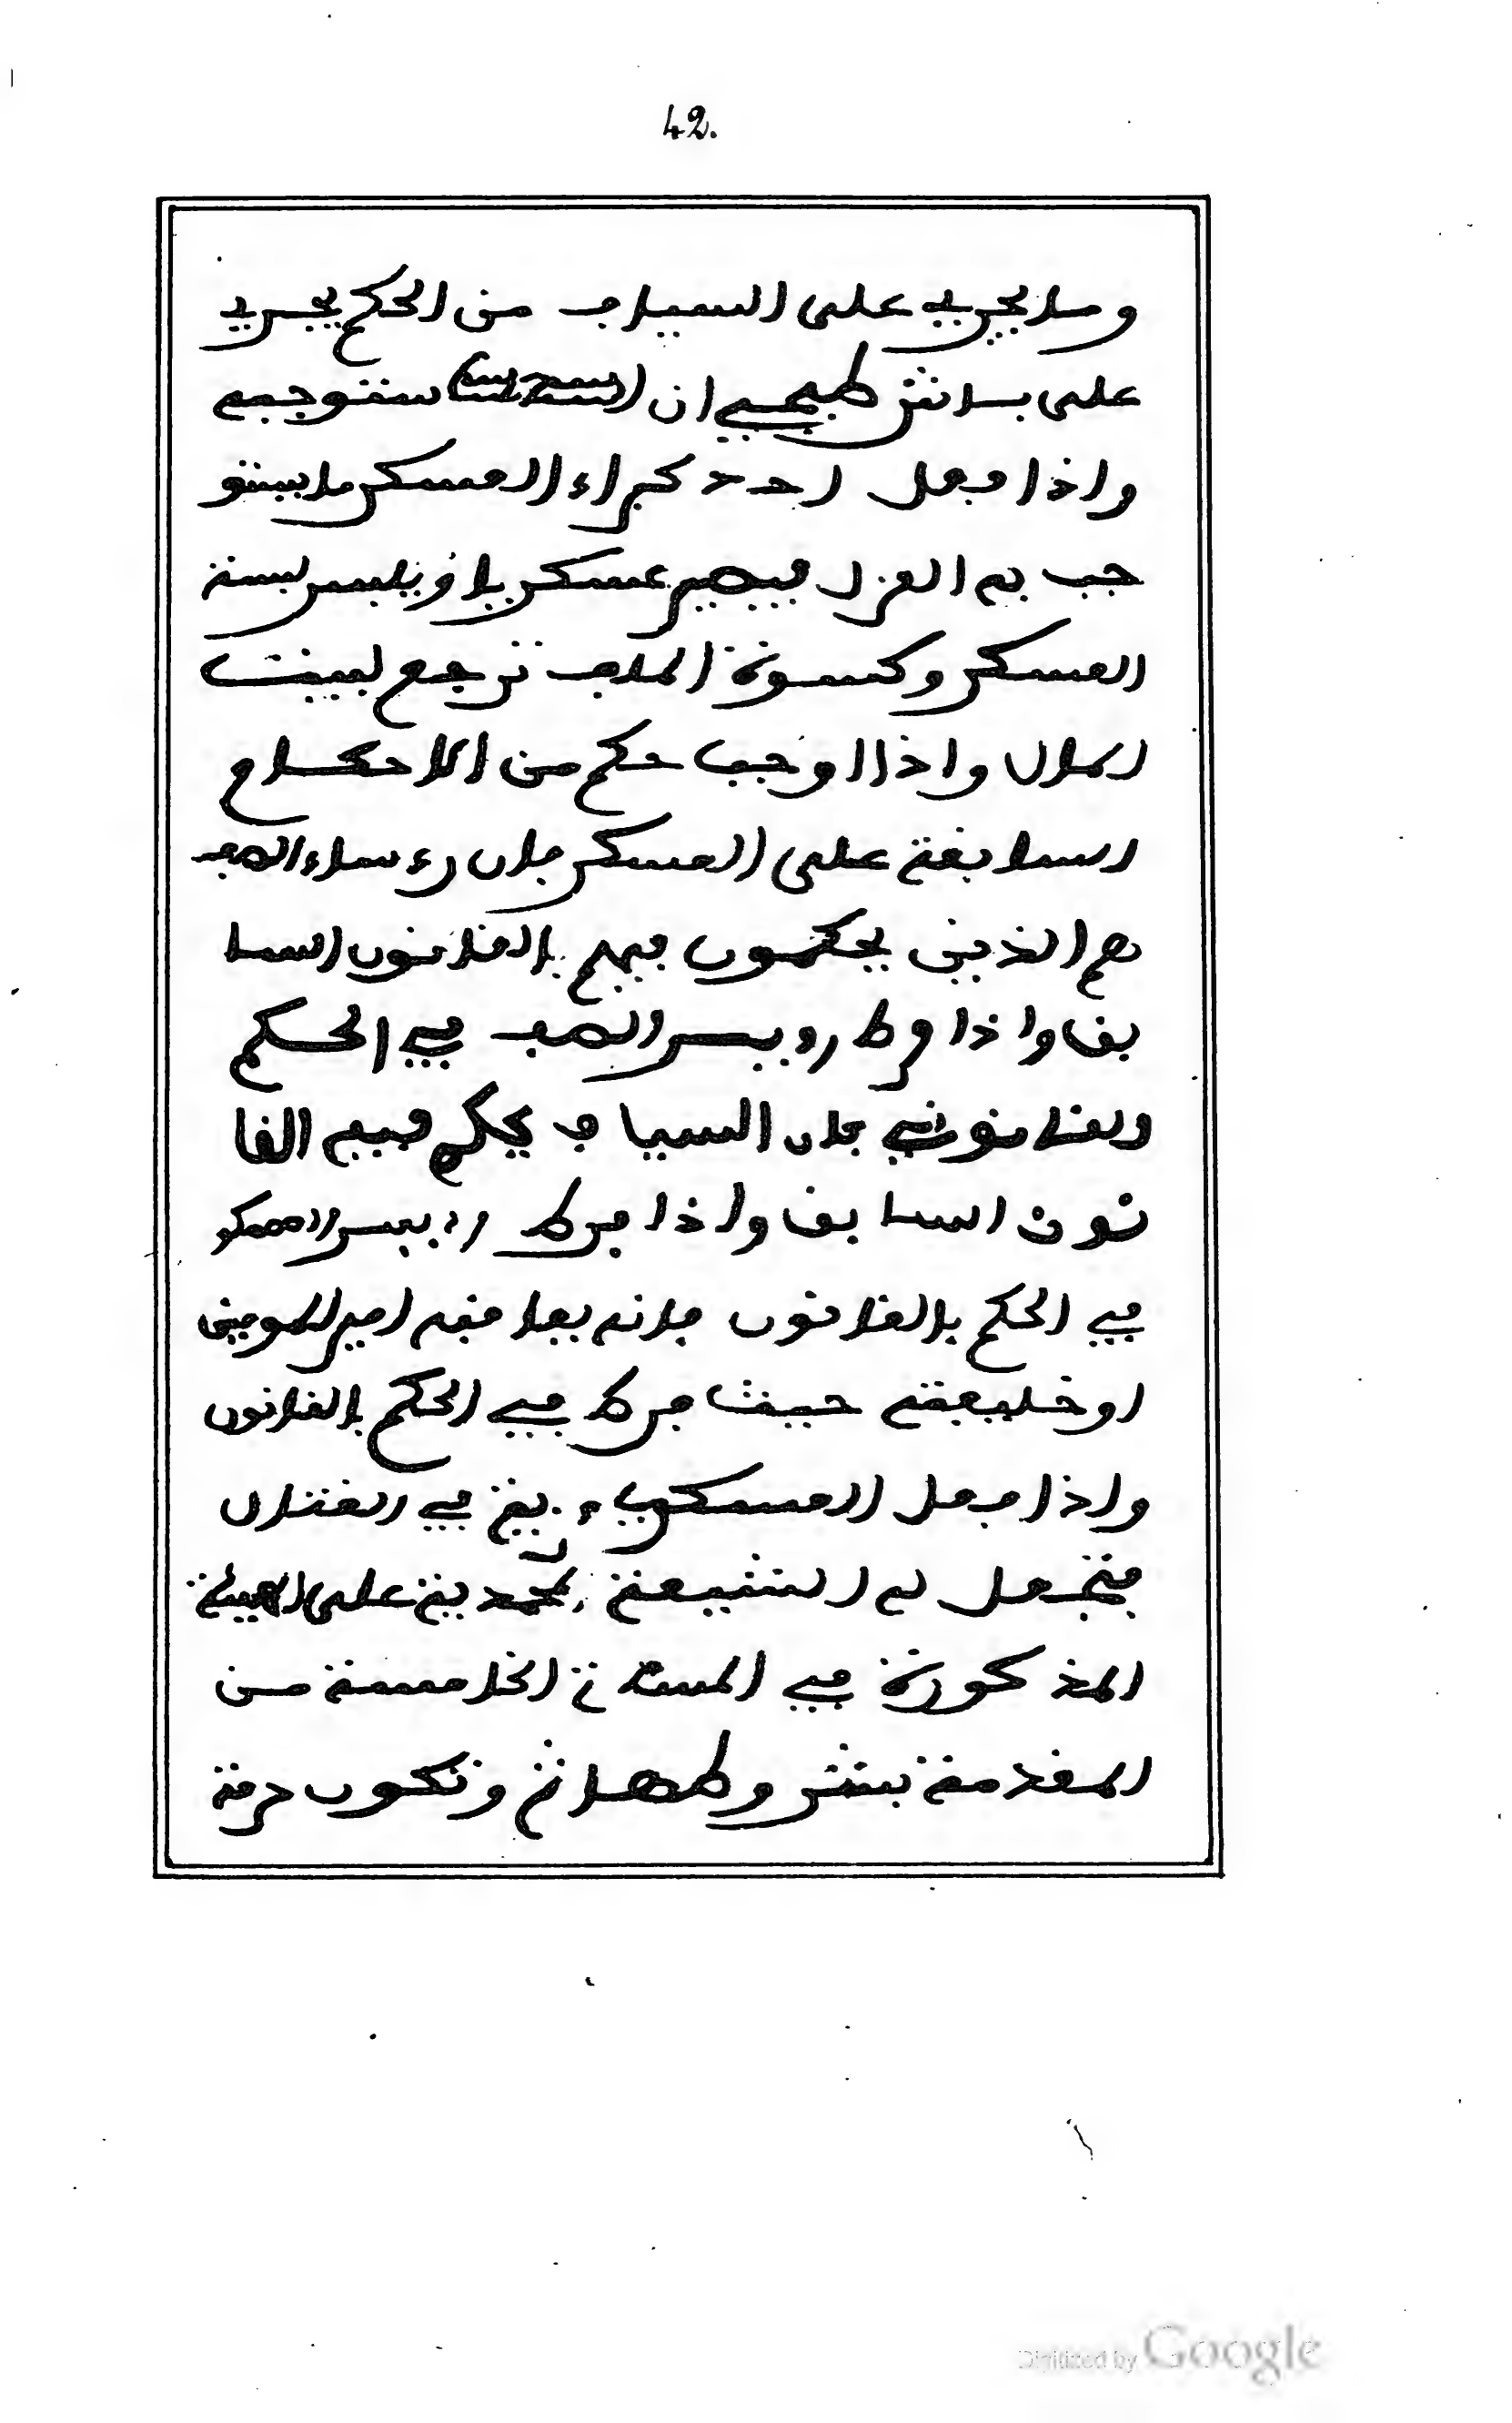 42.
وما يجري على السياف من الحكم يجري
على باش طبجي ان استوجبه
واذا فعل احد كبراء العسكر ما يستو
جب به العزل فيصير عسكريا ويلبس لبسة
العسكر وكسوة الملف ترجع لبيت
المال واذا اوجب حكم من الاحكام
السابقة على العسكر فان رءساء الصف
هم الذين يحكمون فيهم بالقانون السا
بق واذا فرط رويس الصف في الحكم
القانوني فان السياف يحكم فيه القا
نون السابق واذا فرط رييس العسكر
في الحكم بالقانون فانه يعاقبه امير المومنين
او خليفته حيث فرط في الحكم بالقانون
واذا فعل العسكري مزية في القتال
فتجعل له الشيعة المحمدية على الهيئة
المذكورة في المسئلة الخامسة من
المقدمة بشروطها وتكون حرفة
Digitized by Google